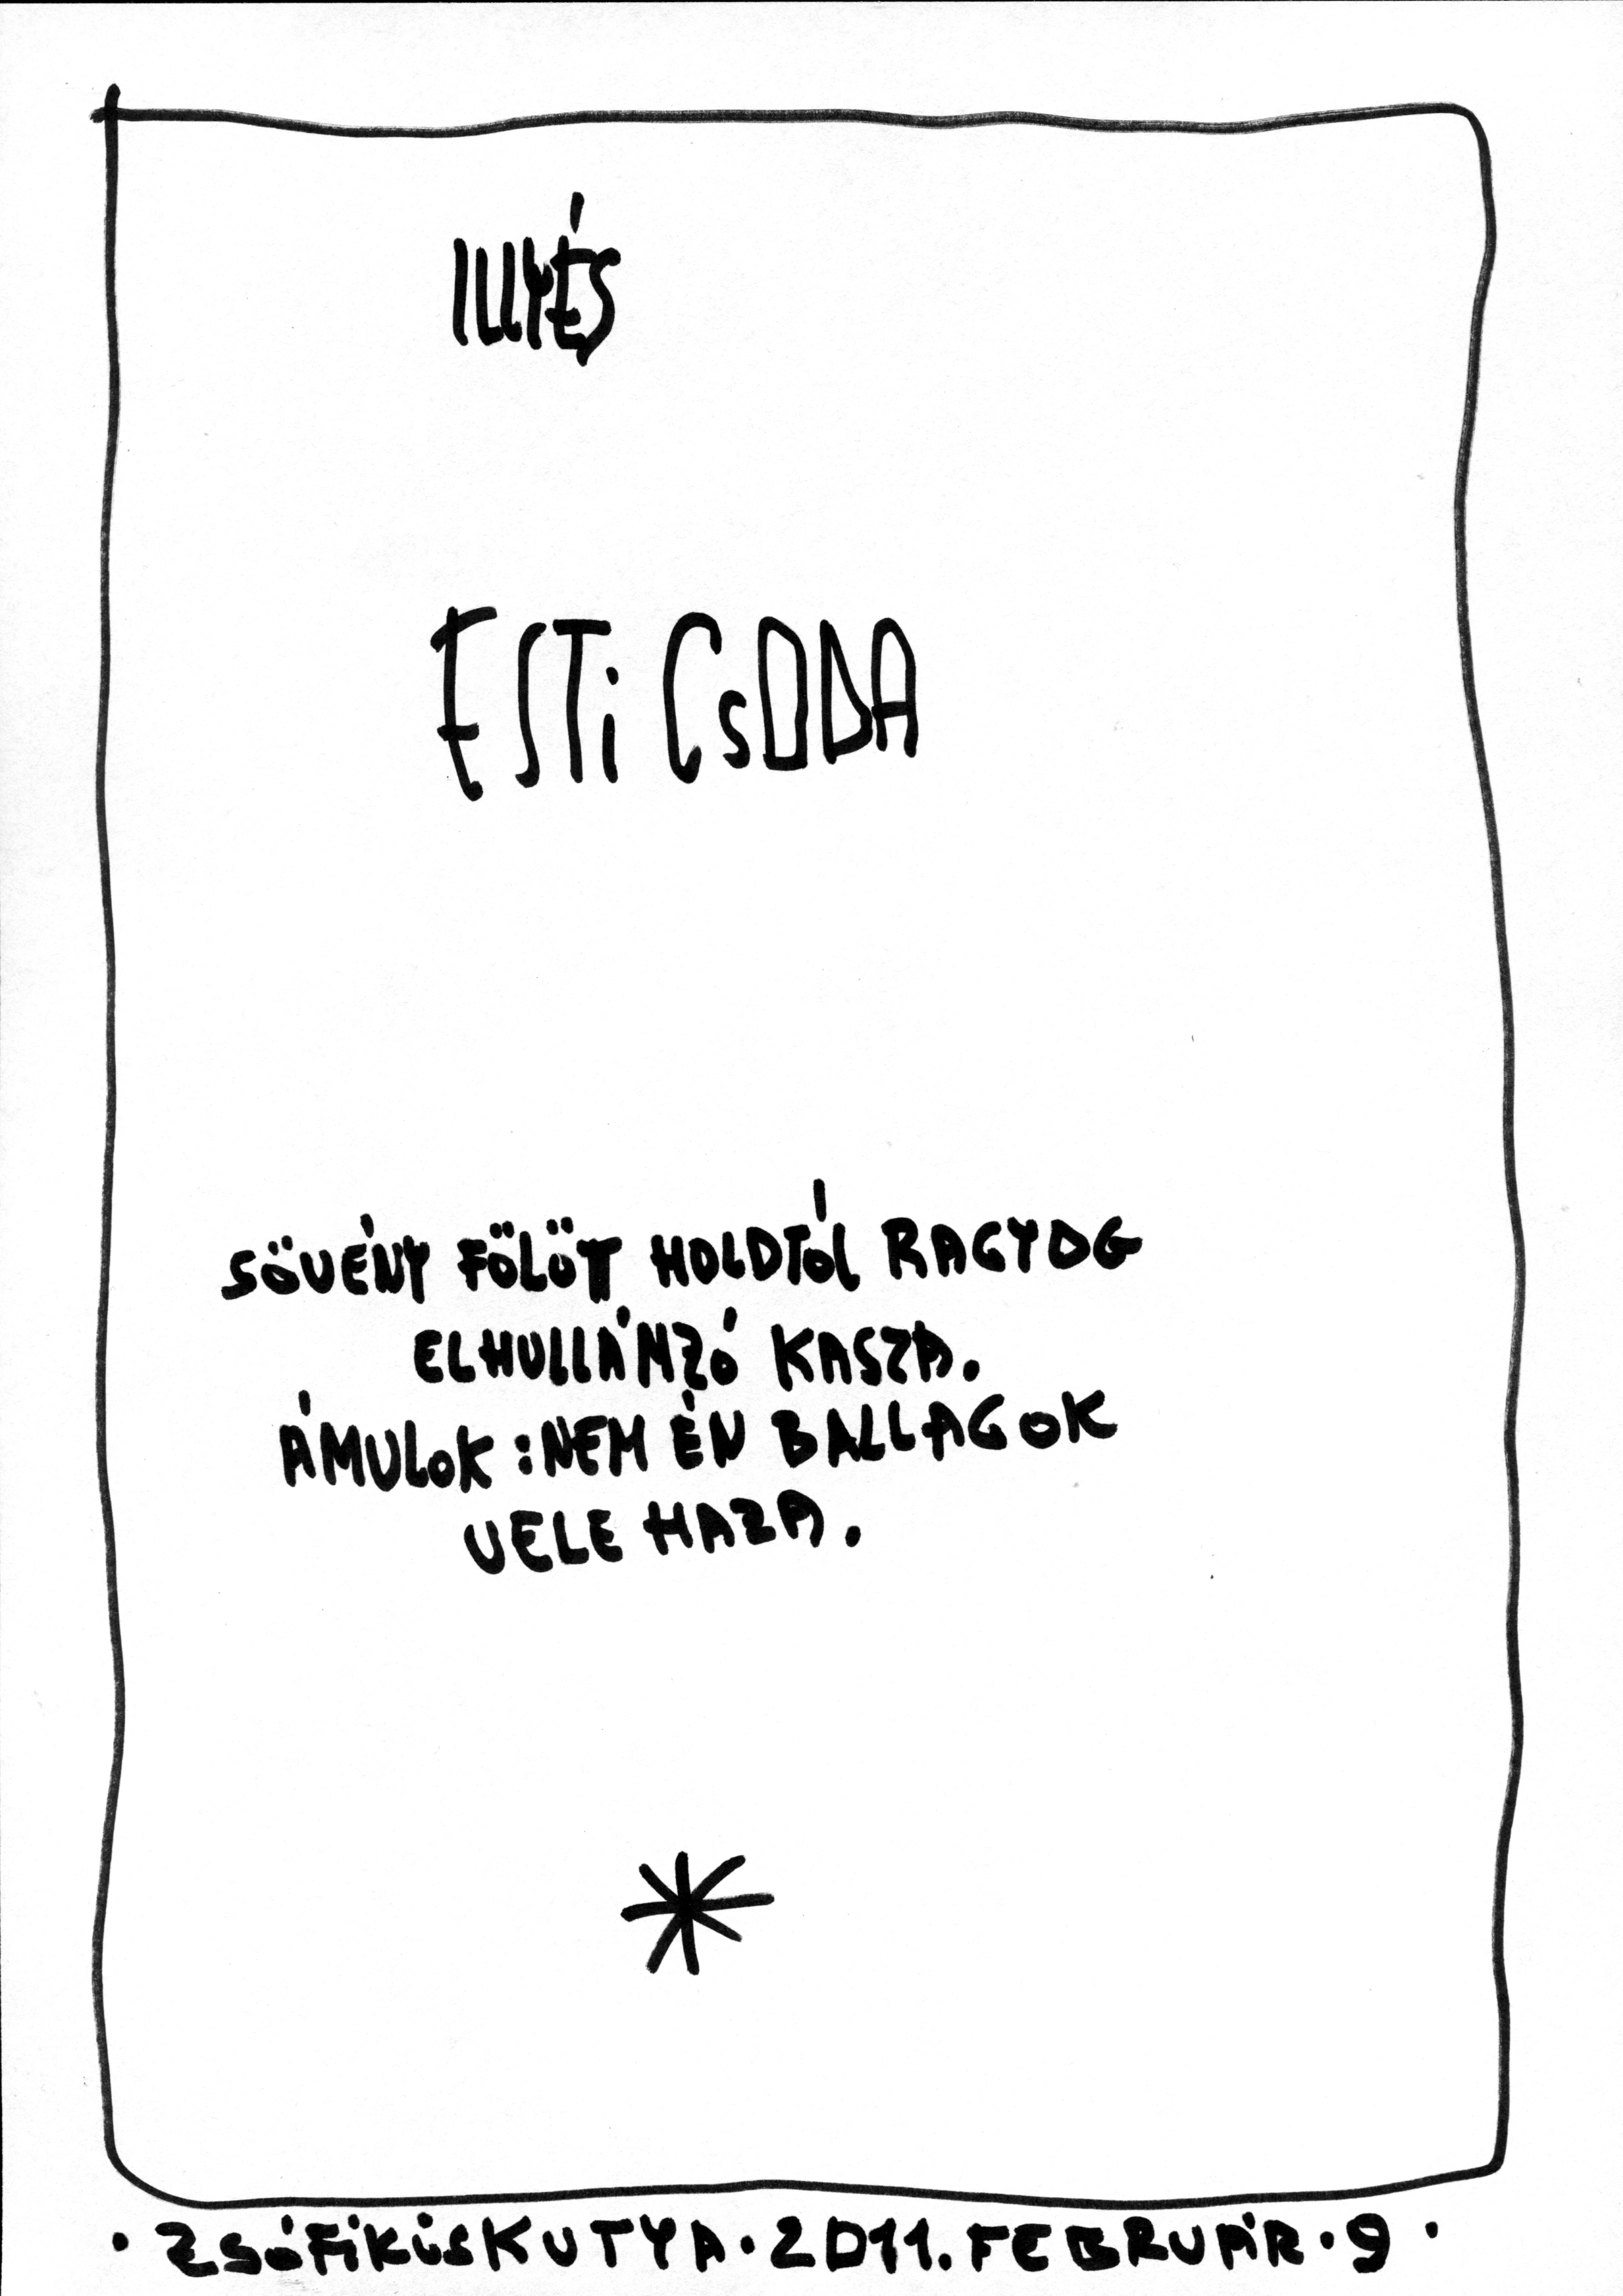 ILLYÉS
ESTi CsODA
SÖVÉNY FÖLÖTT HOLDTÓL RAGYOG
ELHULLÁMZÓ KASZA.
ÁMULOK :NEM ÉN BALLAGOK
VELE HAZA.
*
· ZSÓFIKISKUTYA · 2011. FEBRUÁR · 9 ·